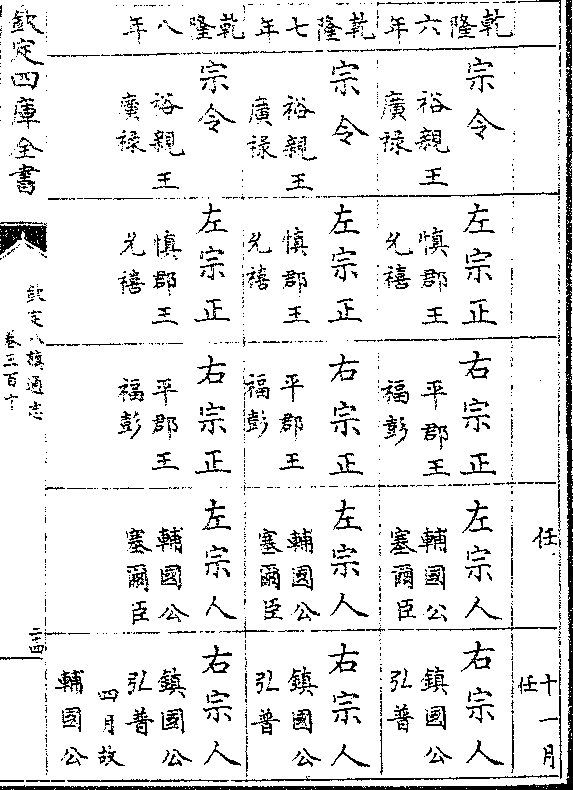 任
十一月
任
乾隆六年
宗令
裕親王
廣禄
左宗正
慎郡王
允禧
右宗正
平郡王
福彭
左宗人
輔國公
塞爾臣
右宗人
鎮國公
弘普
乾隆七年
宗令
裕親王
廣禄
左宗正
慎郡王
允禧
右宗正
平郡王
福彭
左宗人
輔國公
塞爾臣
右宗人
鎮國公
弘普
乾隆八年
宗令
裕親王
廣禄
左宗正
慎郡王
允禧
右宗正
平郡王
福彭
左宗人
輔國公
塞爾臣
右宗人
鎮國公
弘普
四月故
輔國公
欽定四庫全書
欽定八旗通志
卷三百十
二四